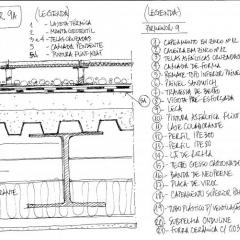 R 9A
(LEGENDA)
1 LAJETA TÉRMICA
2 MANTA GEOTEXTIL
3 e 4 TELAS CRUZADAS
5 CAMADA PENDENTE
5A
(LEGENDA)
PORMENOR 9
1 CAPEAMENTO EM ZINCO Nº12
2 CALEIRA EM ZINCO Nº12
3 TELAS ASFÁLTICAS CRUZADAS
4 CAMADA DE FORMA
5 REMATE TIPO
6 PAINEL SANDWICH
7 TRAVESSA DE
8 VIGOTA PRÉ-ESFORÇADA
9 LECA
10 PINTURA ASFÁLTICA
11 LAJE COLABORANTE
12 PERFIL IPE 300
13 PERFIL IPE
14 LÃ DE ROCHA
15 TECTO GESSO CARTONADO
16 BANDA DE NEOPRENE
17 PLACA DE VIROC
18 CAPEAMENTO SUPERIOR
19 TUBO PLÁSTICO P/ VENTILAÇÃO
20 SUBTELHA ONDULINE
21 FORRA CERÂMICA
5A
RANTE